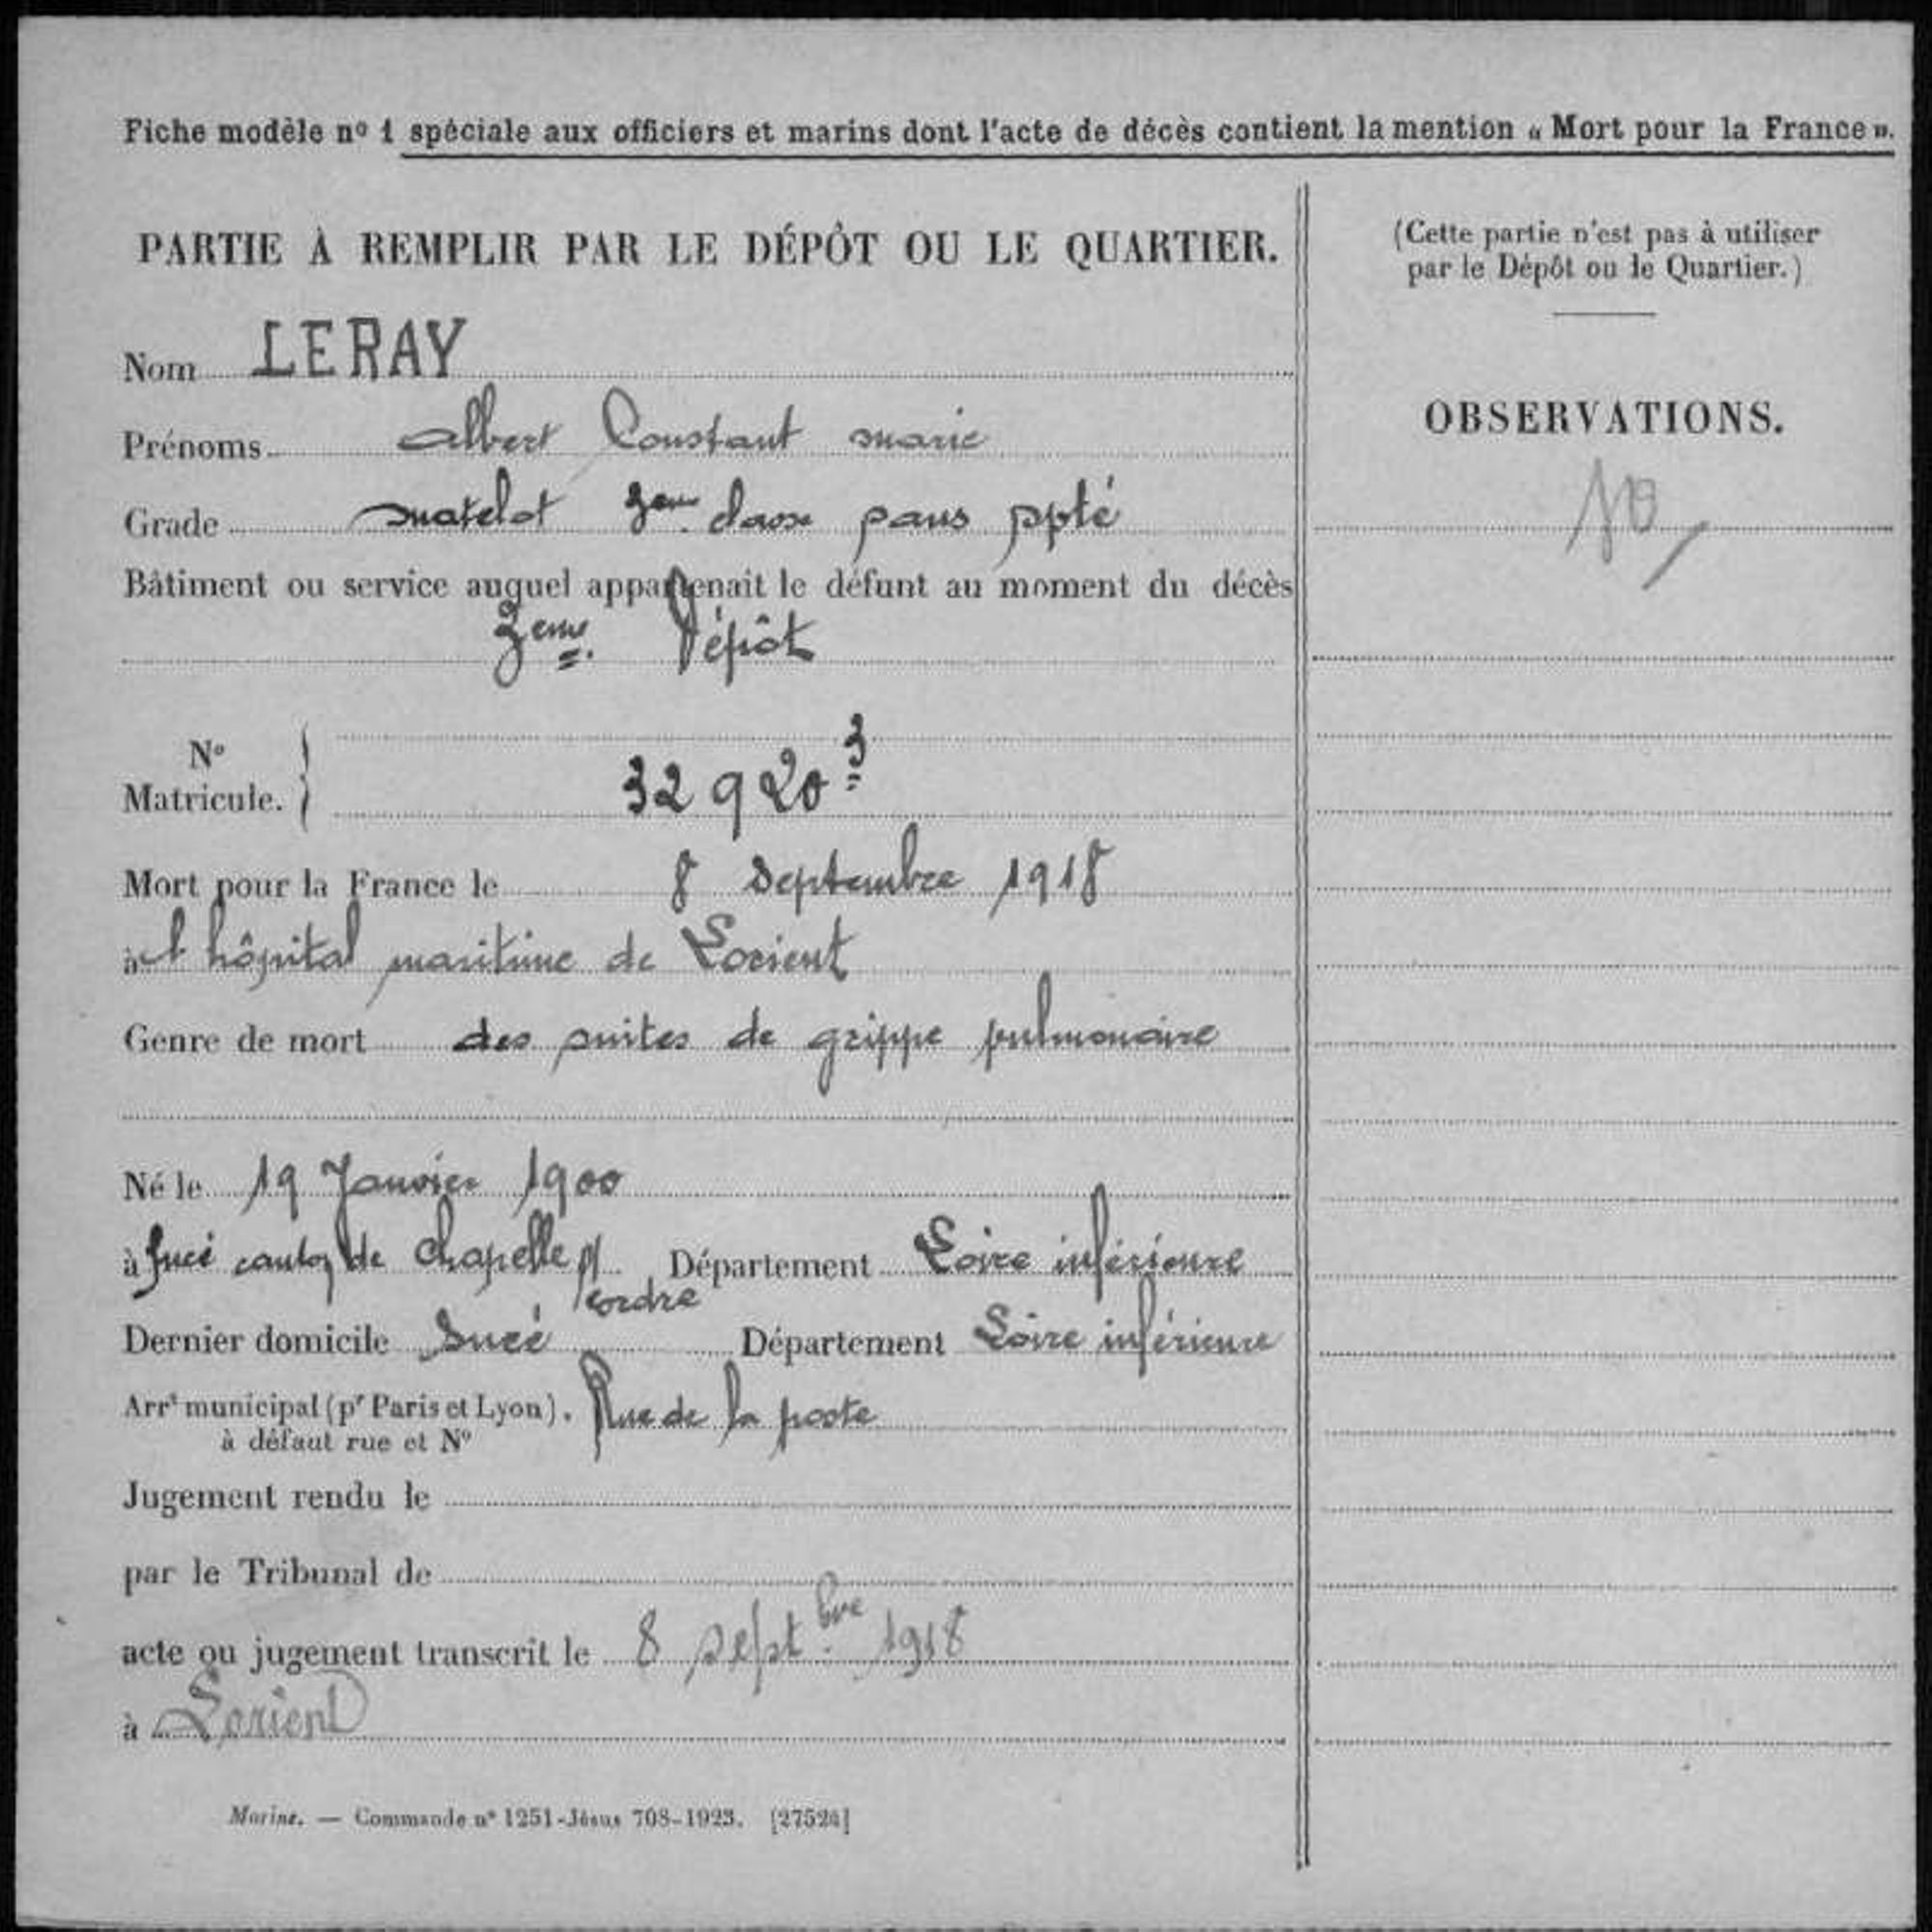 Fiche modèle nº 1 spéciale aux officiers et marins dont l'acte de décès contient la mention « Mort pour la France ».
PARTIE À REMPLIR PAR LE DÉPÔT OU LE QUARTIER.
Nom LERAY
Prénoms albert Constant marie
Grade matelot 3eme classe sans spté
Bâtiment ou service auquel appartenait le défunt au moment du décès
3eme. Dépôt
Nº
Matricule. } 32920 3
Mort pour la France le 8 Septembre 1918
à l'hôpital maritime de Lorient
Genre de mort des suites de grippe pulmonaire
Né le 19 Janvier 1900
à Sucé canton de Chapelle s/ Département Loire inférieure
Erdre
Dernier domicile Sucé Département Loire inférieure
Arrt municipal (pr Paris et Lyon). Rue de la poste
à défaut rue et Nº
Jugement rendu le
par le Tribunal de
acte ou jugement transcrit le 8 sept.bre 1918
à Lorient
Marine. — Commande nº 1251-Jésus 708-1923. [27524]
(Cette partie n'est pas à utiliser
par le Dépôt ou le Quartier.)
OBSERVATIONS.